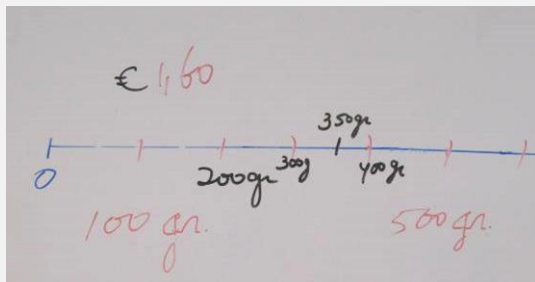 € 1,60
350gr
0 200gr 300g 400gr
100 gr. 500gr.